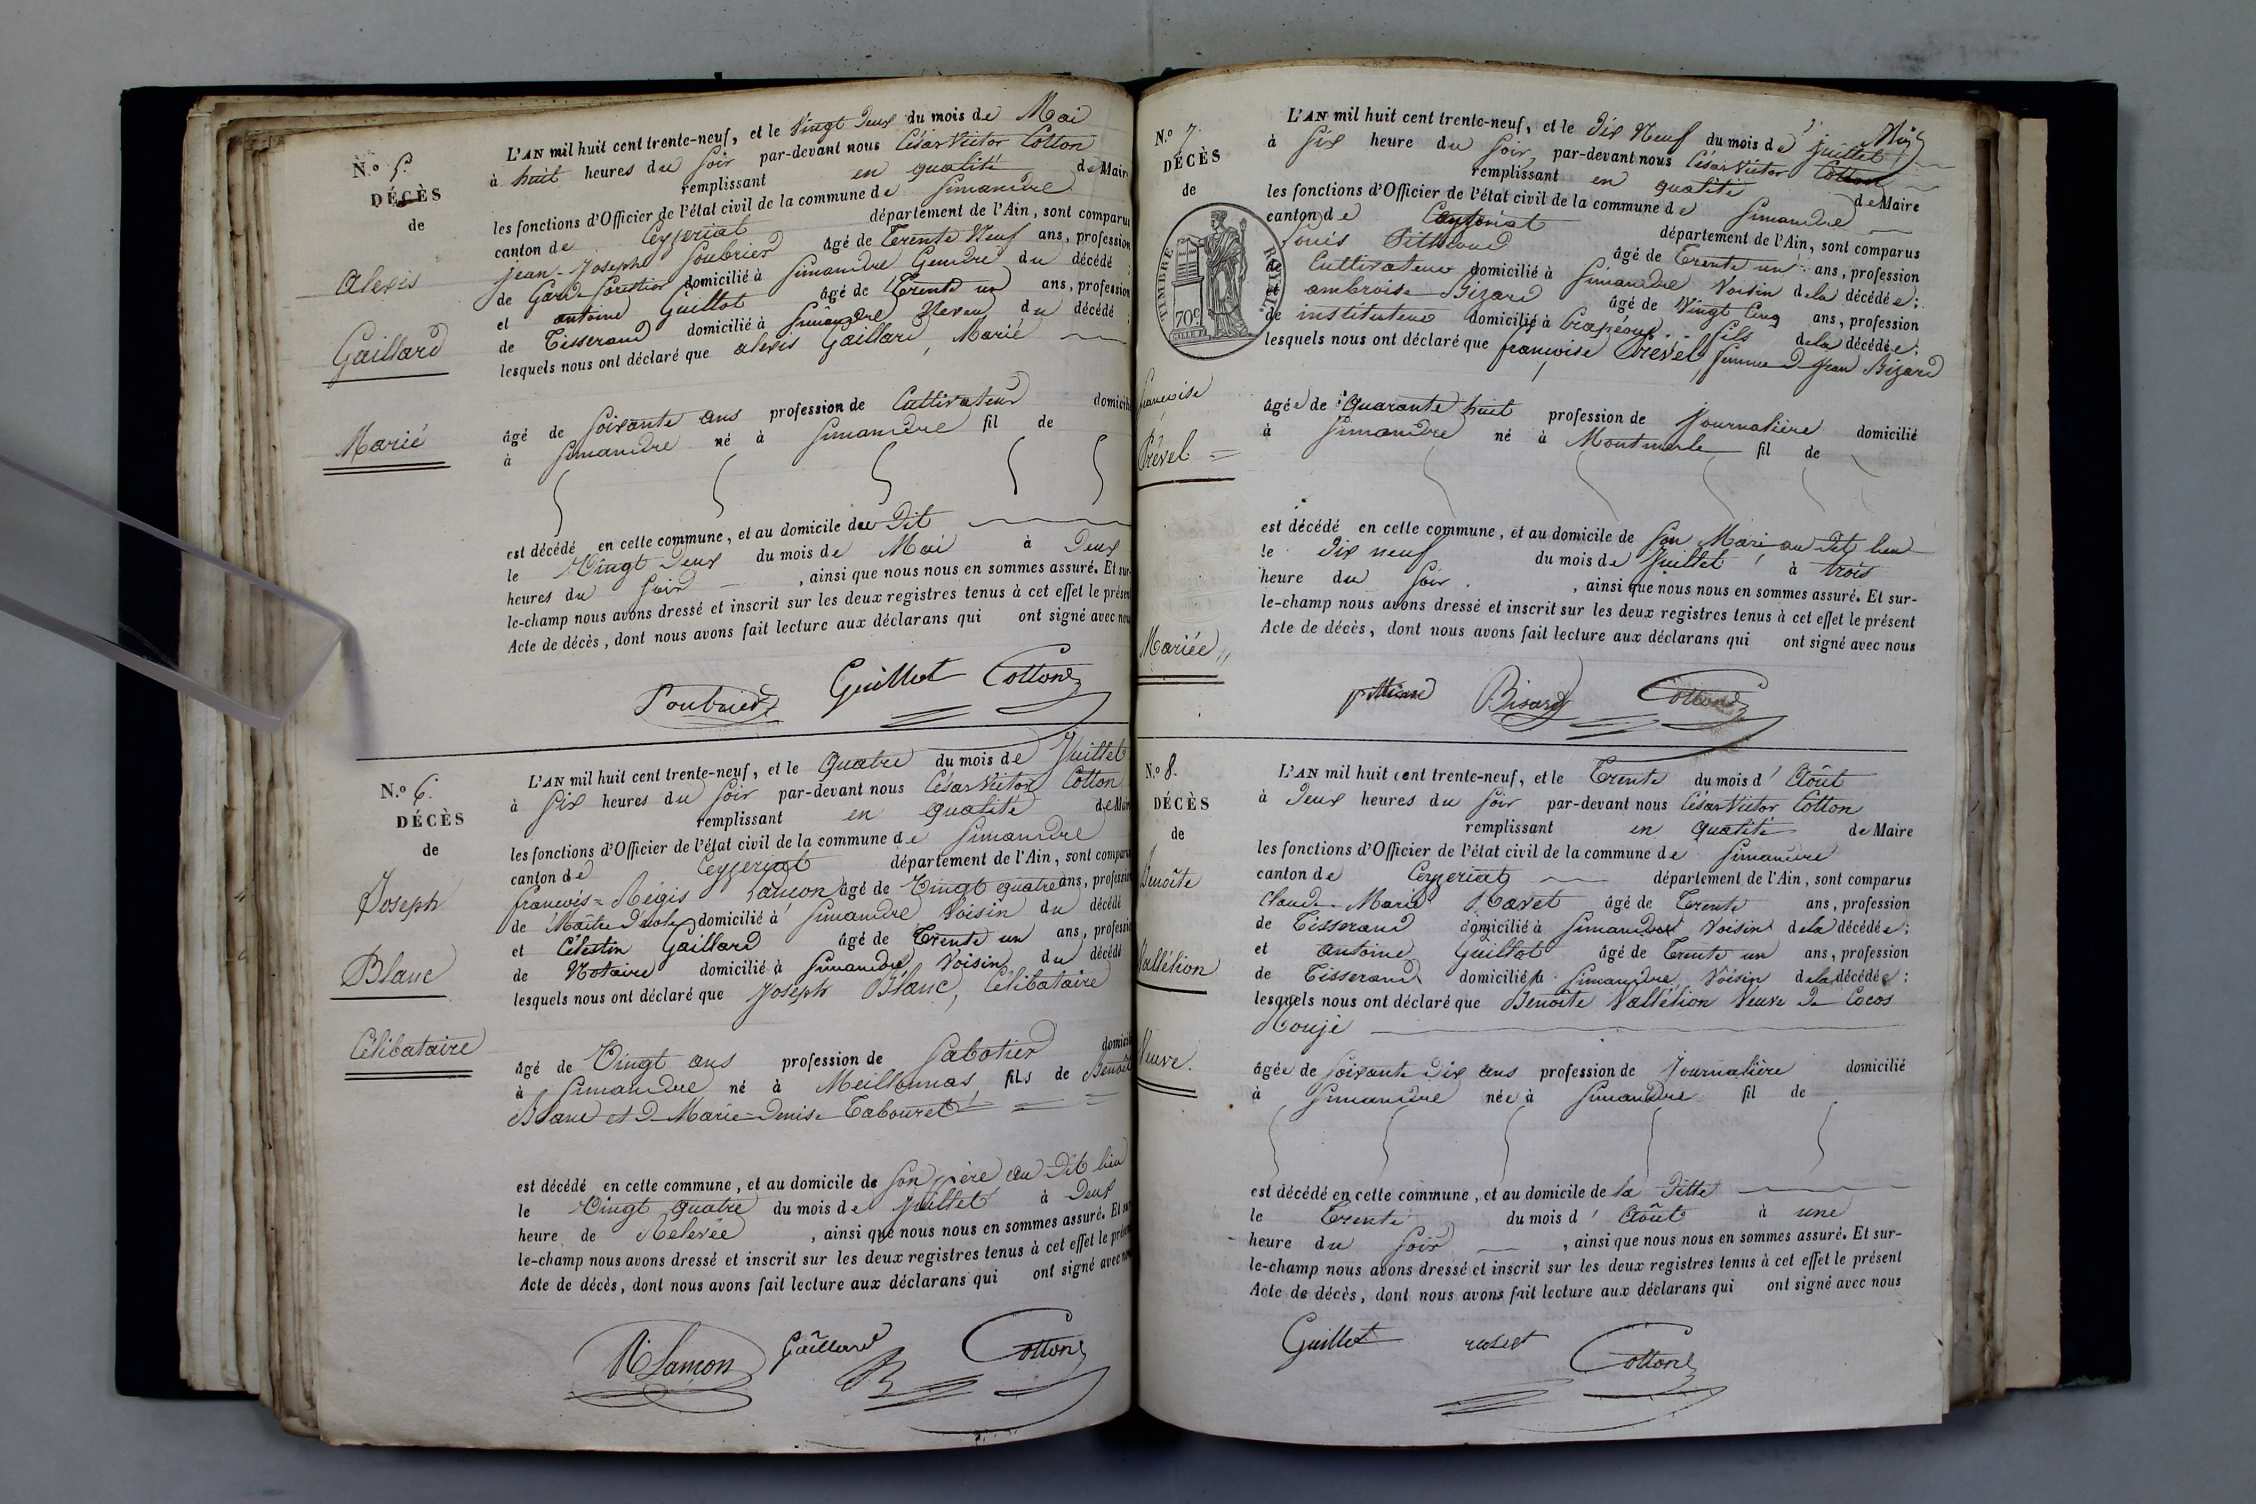 N.o 5.
DÉCÈS
de
Alexis
Gaillard
Marié
L'AN mil huit cent trente-neuf, et le Vingt Deux du mois de Mai
à huit heures du soir par-devant nous César Victor Cotton
remplissant en qualité de Maire
les fonctions d'Officier de l'état civil de la commune de Simandre
canton de Ceyzeriat département de l'Ain, sont comparus
Jean-Joseph Soubrier âgé de Trente Neuf ans, profession
de Garde forestier domicilié à Simandre Gendre du décédé ;
et antoine Guillot âgé de Trente un ans, profession
de Tisserand domicilié à Simandre Neveu du décédé ;
lesquels nous ont déclaré que alexis Gaillard, Marié
âgé de Soixante ans profession de Cultivateur domicilié
à Simandre né à Simandre fil de
est décédé en cette commune, et au domicile du Dit
le Vingt Deux du mois de Mai à Deux
heures du Soir , ainsi que nous nous en sommes assuré. Et sur-
le-champ nous avons dressé et inscrit sur les deux registres tenus à cet effet le présent
Acte de décès, dont nous avons fait lecture aux déclarans qui ont signé avec nous
Soubrier Guillot Cotton
N.o 6.
DÉCÈS
de
Joseph
Blanc
Célibataire
L'AN mil huit cent trente-neuf, et le Quatre du mois de Juillet
à Six heures du Soir par-devant nous César Victor Cotton
remplissant en qualité de Maire
les fonctions d'Officier de l'état civil de la commune de Simandre
canton de Ceyzeriat département de l'Ain, sont comparus
françois=Régis Lançon âgé de Vingt quatre ans, profession
de Maître d'école domicilié à Simandre Voisin du décédé
et Célestin Gaillard âgé de Trente un ans, profession
de Notaire domicilié à Simandre Voisin du décédé
lesquels nous ont déclaré que Joseph Blanc, Célibataire
âgé de Vingt ans profession de Sabotier domicilié
à Simandre né à Meillonnas fils de Benoît
Blanc et de Marie=Denise Tabouret
est décédé en cette commune, et au domicile de son père au Dit lieu
le Vingt quatre du mois de Juillet à Deux
heure de Relevée , ainsi que nous nous en sommes assuré. Et sur-
le-champ nous avons dressé et inscrit sur les deux registres tenus à cet effet le présent
Acte de décès, dont nous avons fait lecture aux déclarans qui ont signé avec nous
R Lançon Gaillard Cotton
N.o 7.
DÉCÈS
de
TIMBRE ROYAL
70c
françoise
Prével
Mariée
L'AN mil huit cent trente-neuf, et le Dix Neuf du mois de Juillet
à Six heure du Soir, par-devant nous César Victor Cotton
remplissant en qualité de Maire
les fonctions d'Officier de l'état civil de la commune de Simandre
canton de Ceyzeriat département de l'Ain, sont comparus
Louis Pithioud âgé de Trente un ans, profession
de Cultivateur domicilié à Simandre Voisin de la décédée ;
et ambroise Bizard âgé de Vingt Cinq ans, profession
de instituteur domicilié à fils de la décédée ;
lesquels nous ont déclaré que françoise Prével, femme de Jean Bizard
âgée de Quarante huit profession de Journalière domicilié
à Simandre né à Montmerle fil de
est décédé en cette commune, et au domicile de Son Mari au Dit lieu
le Dix neuf du mois de Juillet à trois
heure du Soir , ainsi que nous nous en sommes assuré. Et sur-
le-champ nous avons dressé et inscrit sur les deux registres tenus à cet effet le présent
Acte de décès, dont nous avons fait lecture aux déclarans qui ont signé avec nous
Bisard Cotton
N.o 8.
DÉCÈS
de
Benoîte
Vallétion
Veuve.
L'AN mil huit cent trente-neuf, et le Trente du mois d'Août
à Deux heures du Soir par-devant nous César Victor Cotton
remplissant en qualité de Maire
les fonctions d'Officier de l'état civil de la commune de Simandre
canton de Ceyzeriat département de l'Ain, sont comparus
Claude-Marie Ravet âgé de Trente ans, profession
de Tisserand domicilié à Simandre Voisin de la décédée ;
et antoine Guillot âgé de Trente un ans, profession
de Tisserand domicilié à Simandre, Voisin de la décédée ;
lesquels nous ont déclaré que Benoîte Vallétion Veuve De Cocos
Rouje
âgée de Soixante Dix ans profession de Journalière domicilié
à Simandre née à Simandre fil de
est décédé en cette commune, et au domicile de la Ditte
le Trente du mois d'Août à une
heure du Soir , ainsi que nous nous en sommes assuré. Et sur-
le-champ nous avons dressé et inscrit sur les deux registres tenus à cet effet le présent
Acte de décès, dont nous avons fait lecture aux déclarans qui ont signé avec nous
Guillot Cotton